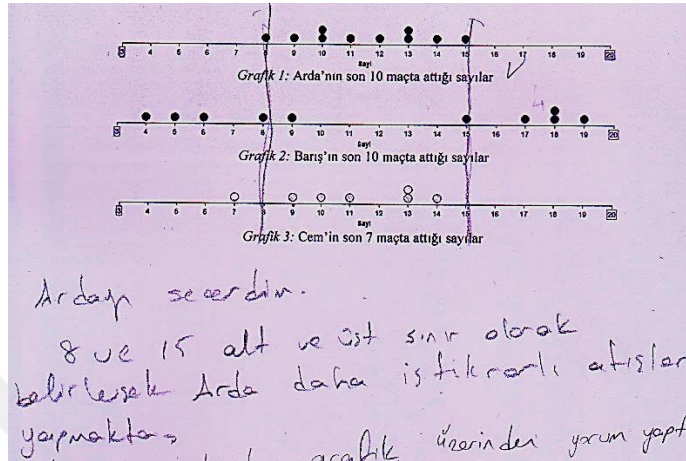 3 4 5 6 7 8 9 10 11 12 13 14 15 16 17 18 19 20
Sayi
Grafik 1: Arda'nın son 10 maçta attığı sayılar
4
3 4 5 6 7 8 9 10 11 12 13 14 15 16 17 18 19 20
Sayi
Grafik 2: Barış'ın son 10 maçta attığı sayılar
3 4 5 6 7 8 9 10 11 12 13 14 15 16 17 18 19 20
Sayi
Grafik 3: Cem'in son 7 maçta attığı sayılar
Ardayı seçerdim.
8 ve 15 alt ve üst sınır olarak
belirlersek Arda daha istikrarlı atışlar
yapmakta
grafik üzerinden yorum yapt